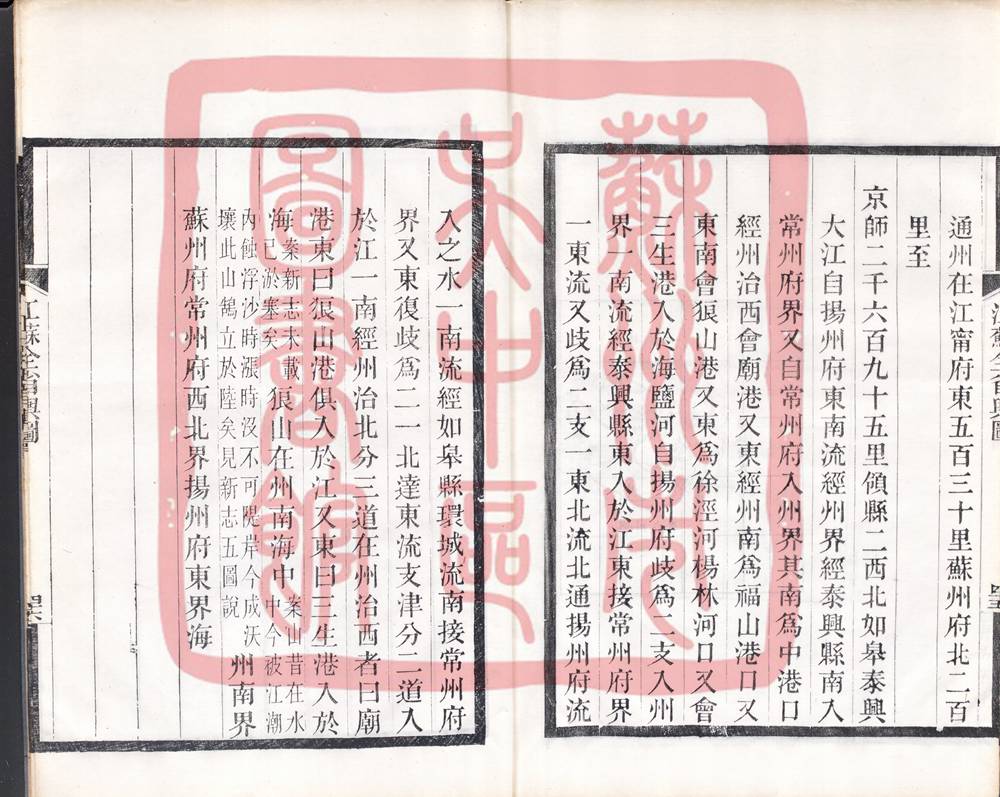 通州在江甯府東五百三十里蘇州府北二百
里至
京師二千六百九十五里領縣二西北如皋泰興
大江自揚州府東南流經州界經泰興縣南入
常州府界又自常州府入州界其南爲中港口
經州治西會廟港又東經州南爲福山港口又
東南會狼山港又東爲徐涇河楊林河口又會
三生港入於海鹽河自揚州府歧爲二支入州
界一南流經泰興縣東入於江東接常州府界
一東流又歧爲二支一東北流北通揚州府流
入之水一南流經如皋縣環城流南接常州府
界又東復歧爲二一北達東流支津分二道入
於江一南經州治北分三道在州治西者曰廟
港東曰狼山港俱入於江又東曰三生港入於
海案新志未載已於塞矣狼山在州南海中案山昔在水中今被江潮
內蝕浮沙時漲時没不可隄岸今成沃壤此山鵠立於陸矣見新志五圖說州南界
蘇州府常州府西北界揚州府東界海
江蘇全省輿圖
蘇州市吳中區圖書館